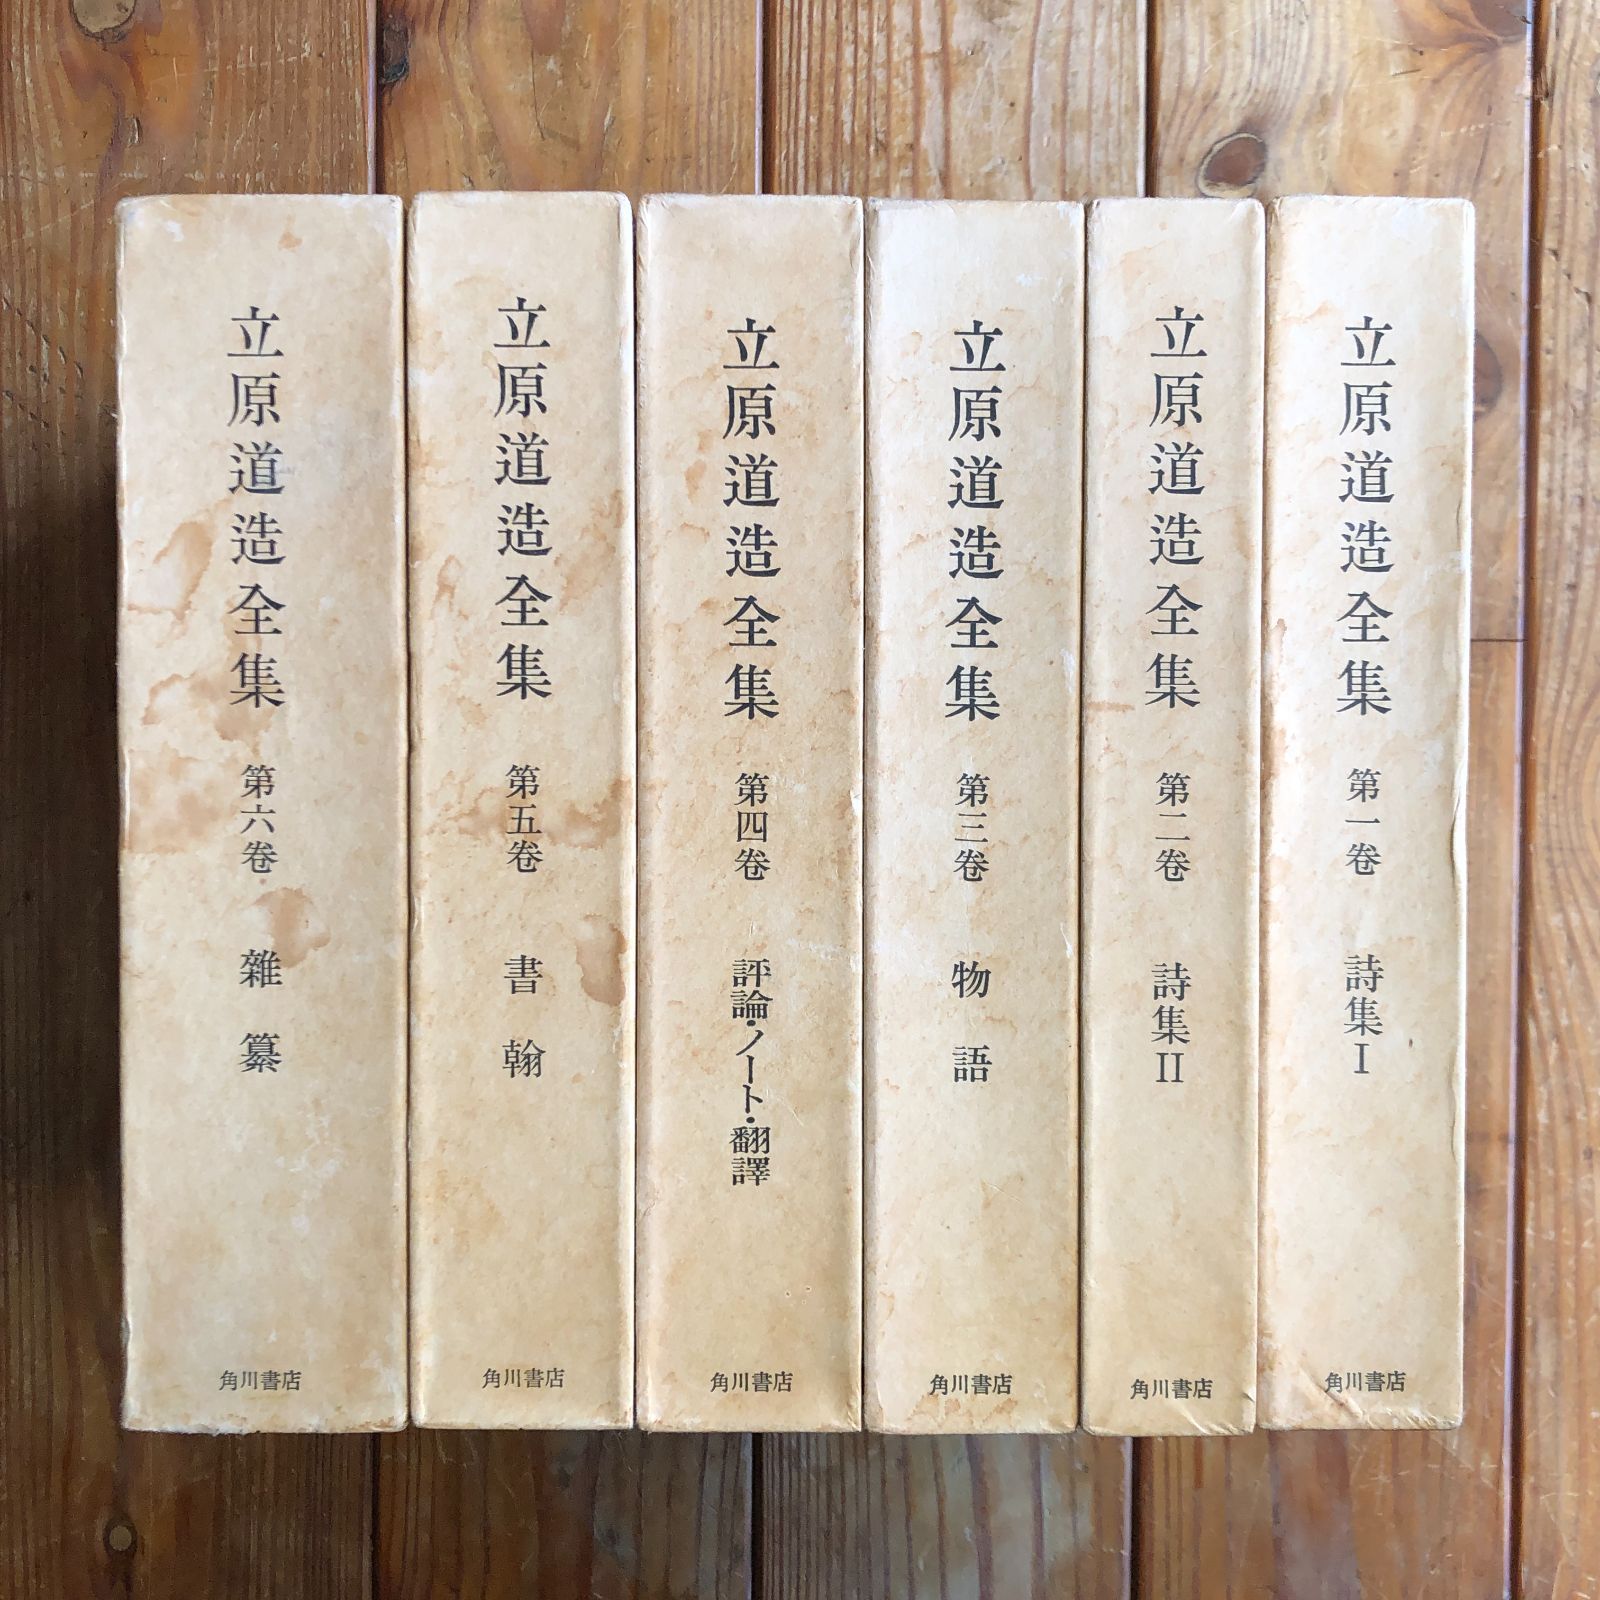 立原道造全集
第一巻
詩集I
角川書店
立原道造全集
第二巻
詩集II
角川書店
立原道造全集
第三巻
物語
角川書店
立原道造全集
第四巻
評論・ノート・翻譯
角川書店
立原道造全集
第五巻
書翰
角川書店
立原道造全集
第六巻
雜纂
角川書店